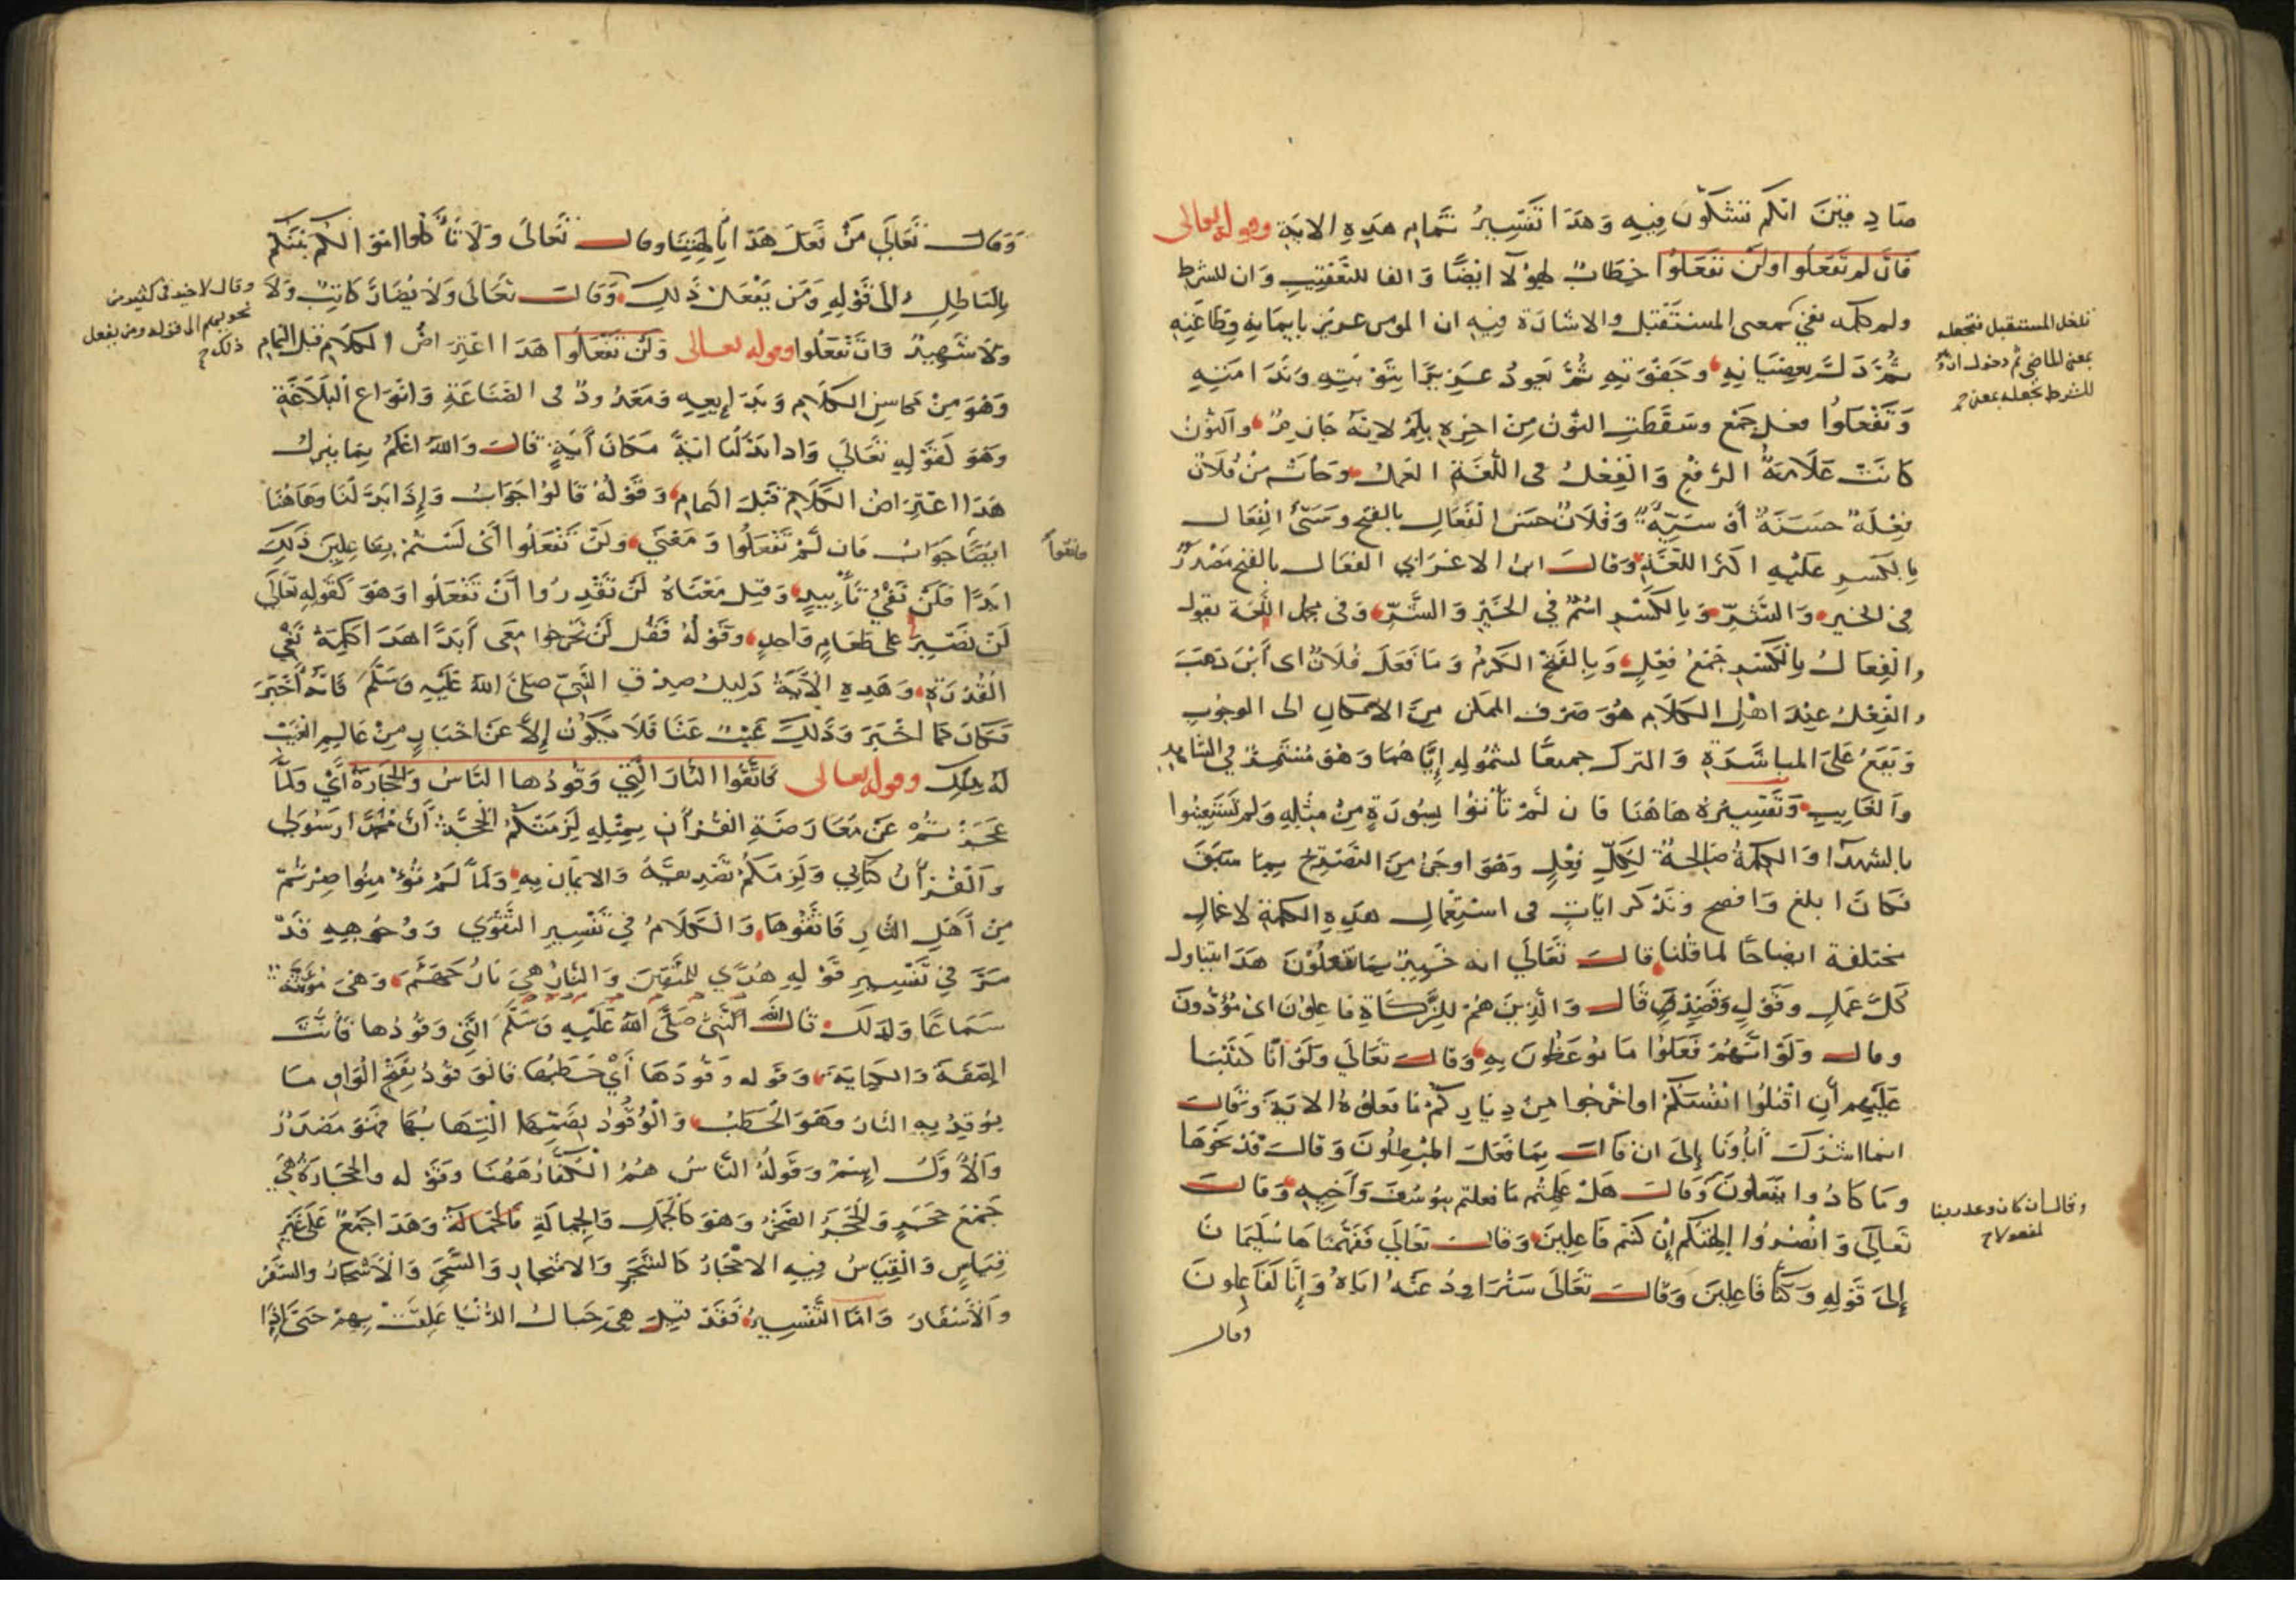 صادقين انكم تشكون فيه وهذا تفسير تمام هذه الاية وقوله تعالى
فان لم تفعلوا ولن تفعلوا خطاب لهولآ ايضًا والفا للتعقيب وان للشرط
ولم كلمه نفي بمعنى المستقبل والاشارة فيه ان المومن عزيز بايمانه وطاعته
ثم ذل بعصيانه وجفوته ثم يعود عزيزا بتوبته وندامته
وتفعلوا فعل جمع وسقطت النون من اخره بلم لانه جازم والنون
كانت علامة الرفع والفعل فى اللغة العمل وكانت من فلان
فعلة حسنة أو سيئة وفلان حسن الفعال بالفتح وسيئ الفعال
بالكسر عليه اكثر اللغة وقال ابن الاعرابي الفعال بالفتح مصدر
في الخير والشر وبالكسر اسم في الخير والشر وفى مجمل اللغة يقول
والفعال بالكسر جمع فعل وبالفتح الكرم وما فعل فلان اى أين ذهب
والفعل عند اهل الكلام هو صرف الممكن من الامكان الى الوجوب
ويقع على المباشرة والترك جميعًا لشموله إياهما وهو مستمر في الشاهد
والغايب وتفسيره هاهنا فان لم تأتوا بسورة من مثله ولم تستعينوا
بالشهدآ والكلمة صالحة لكل فعل وهو اوجز من التصريح بما سبق
فكان ابلغ وافصح ونذكر ايات فى استعمال هذه الكلمة لاعمال
مختلفة ايضاحًا لما قلنا قال تعالى انه خبير بما تفعلون هذا يتناول
كل عمل وقول وقصد وقال والذين هم للزكاة فاعلون اى مؤدون
وقال ولو انهم فعلوا ما يوعظون به وقال تعالى ولو انا كتبنا
عليهم أن اقتلوا انفسكم او اخرجوا من دياركم ما فعلوه الاية وقال
انما اشرك أباؤنا إلى ان قال بما فعل المبطلون وقال فذبحوها
وما كادوا يفعلون وقال هل علمتم ما فعلتم بيوسف وأخيه وقال
تعالى وانصروا الهتكم إن كنتم فاعلين وقال تعالى ففهمناها سليمان
إلى قوله وكنا فاعلين وقال تعالى سنراود عنه اباه وإنا لفاعلون
وقال
تدخل المستقبل فتجعله
بمعنى الماضى ثم دخول ان
للشرط تجعله بمعنى
وقال ان كان وعد ربنا
لمفعولا
وقال تعالى من فعل هذا بألهتنا وقال تعالى ولا تأكلوا اموالكم بينكم
بالباطل الى قوله ومن يفعل ذلك وقال تعالى ولا يضار كاتب ولا
ولا شهيد فان تفعلوا وقوله تعالى ولن تفعلوا هذا اعتراض الكلام قبل التمام
وهو من محاسن الكلام وبدايعه ومعدود فى الصناعة وانواع البلاغة
وهو كقوله تعالى واذا بدلنا اية مكان أية قال والله اعلم بما ينزل
هذا اعتراض الكلام قبل التمام وقوله قالوا جواب وإذا بدلنا وهاهنا
ايضًا جواب فان لم تفعلوا ومعنى ولن تفعلوا أى لستم بفاعلين ذلك
ابدًا فلن نفي تأبيد وقيل معناه لن تقدروا أن تفعلوا وهو كقوله تعالى
لن نصبر على طعام واحد وقوله فقل لن تخرجوا معى أبدًا هذا كلمة نفي
القدرة وهذه الآية دليل صدق النبي صلى الله عليه وسلم فانه أخبر
فكان كما اخبر وذلك غيب عنا فلا يكون إلا عن اخبار من عالم الغيب
له بذلك وقوله تعالى فاتقوا النار التي وقودها الناس والحجارة أي ولما
عجزتم عن معارضة القرآن بمثله لزمتكم الحجة أن محمدًا رسولي
والقرأن كتابي ولزمكم تصديقه والايمان به ولما لم تؤمنوا صرتم
من أهل النار فاتقوها والكلام في تفسير التقوى ووجوهه قد
مر في تفسير قوله هدًى للمتقين والنار هي نار جهنم وهى مؤنثة
سماعًا ولذلك قال النبي صلى الله عليه وسلم التي وقودها فأنث
الصفة والكناية وقوله وقودها أي حطبها فالوقود بفتح الواو ما
يوقد به النار وهو الحطب والوقود بضمها التهابها فهو مصدر
والأول اسم وقوله الناس هم الكفار ههنا وقوله والحجارة هي
جمع حجر والحجر الصخر وهو كالجمل والجمالة وهذا جمع على غير
قياس والقياس فيه الاحجار كالشجر والاشجار والسحر والاسحار والسفر
والأسفار واما التفسير فقد قيل هى جبال الدنيا علقت بهم حتى إذا
وقال لا خير فى كثير من
نجويهم الى قوله ومن يفعل
ذلك